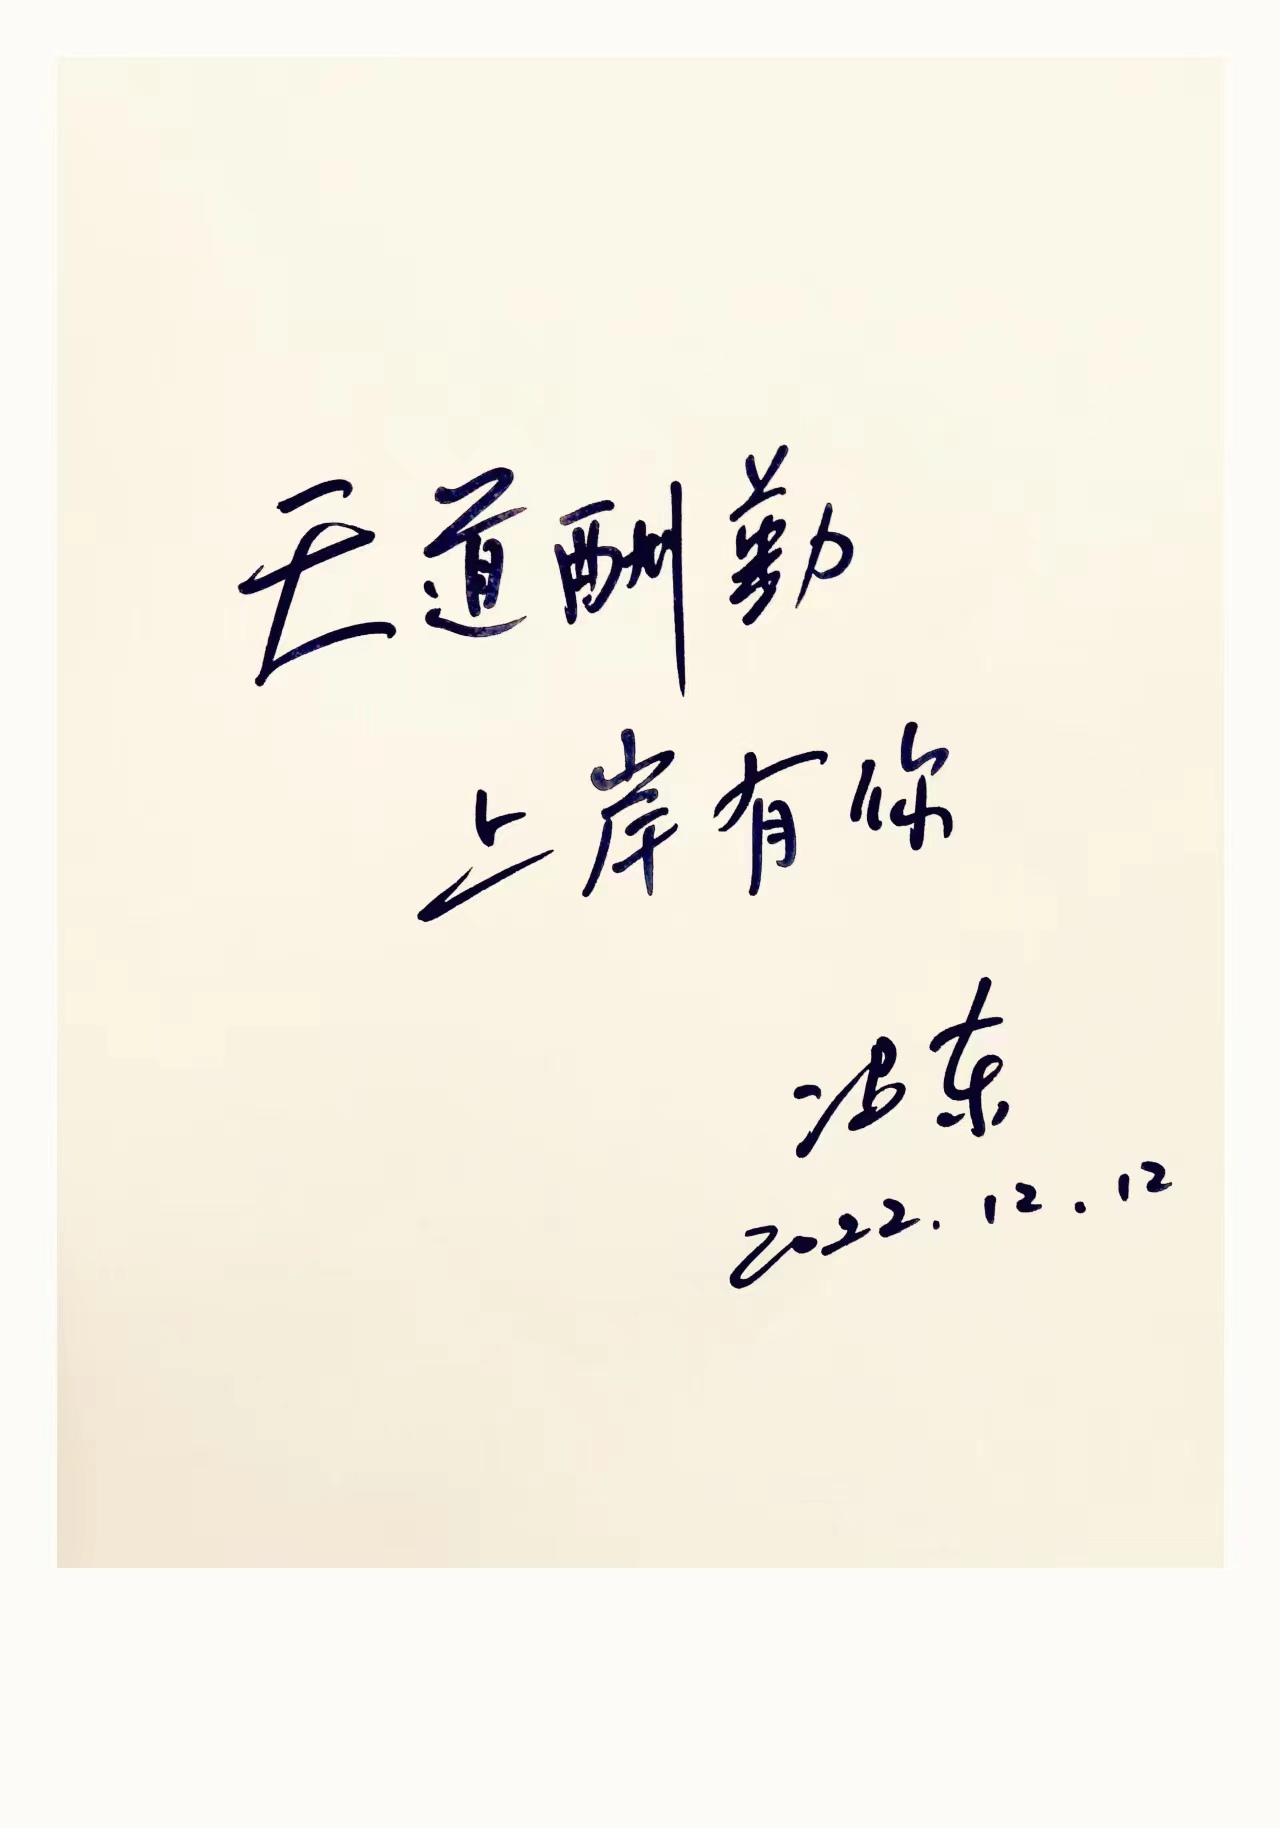 天道酬勤
上岸有你
冯东
2022.12.12